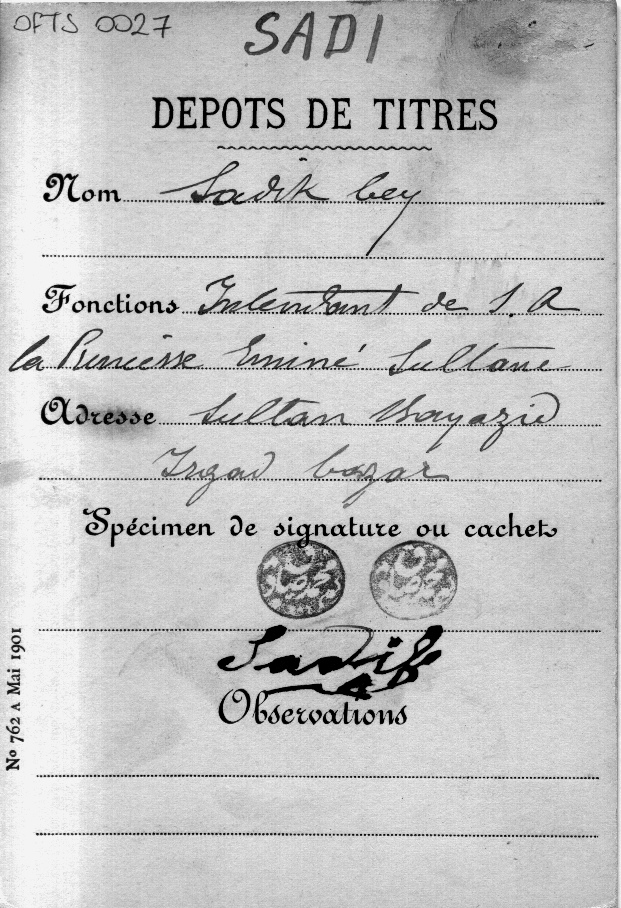 OFTS 0027
SADI
DEPOTS DE TITRES
Nom Sadik bey
Fonctions Intendant de S. A
la Princesse Eminé Sultane
Adresse Sultan Bayazid
Irgad bazar
Spécimen de signature ou cachet
Sadik
Observations
No 762 A Mai 1901